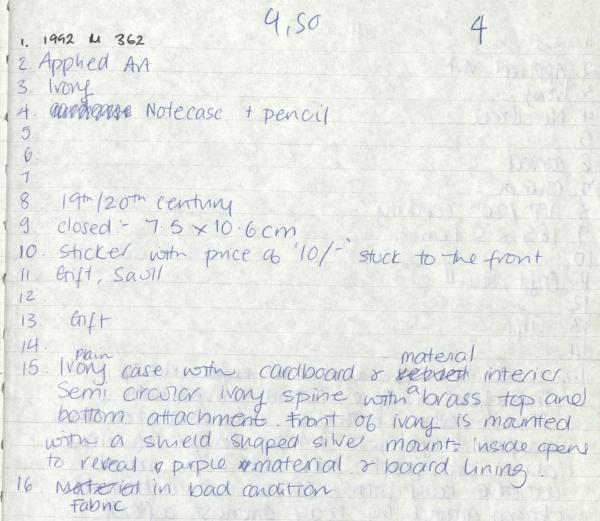 4,50 4
1. 1992 M 362
2. Applied Art
3. Ivory
4. Notecase + pencil
5
6
7
8 19th/20th century
9 closed:- 7.5 x 10.6 cm
10. sticker with price of '10/-' stuck to the front
11 Gift, Saull
12
13. Gift
14.
plain material
15. Ivory case with cardboard & velvet interior.
Semi circular ivory spine with a brass top and
bottom attachment. Front of ivory is mounted
with a shield shaped silver mount. Inside opens
to reveal purple material & board lining.
16 Material in bad condition
Fabric